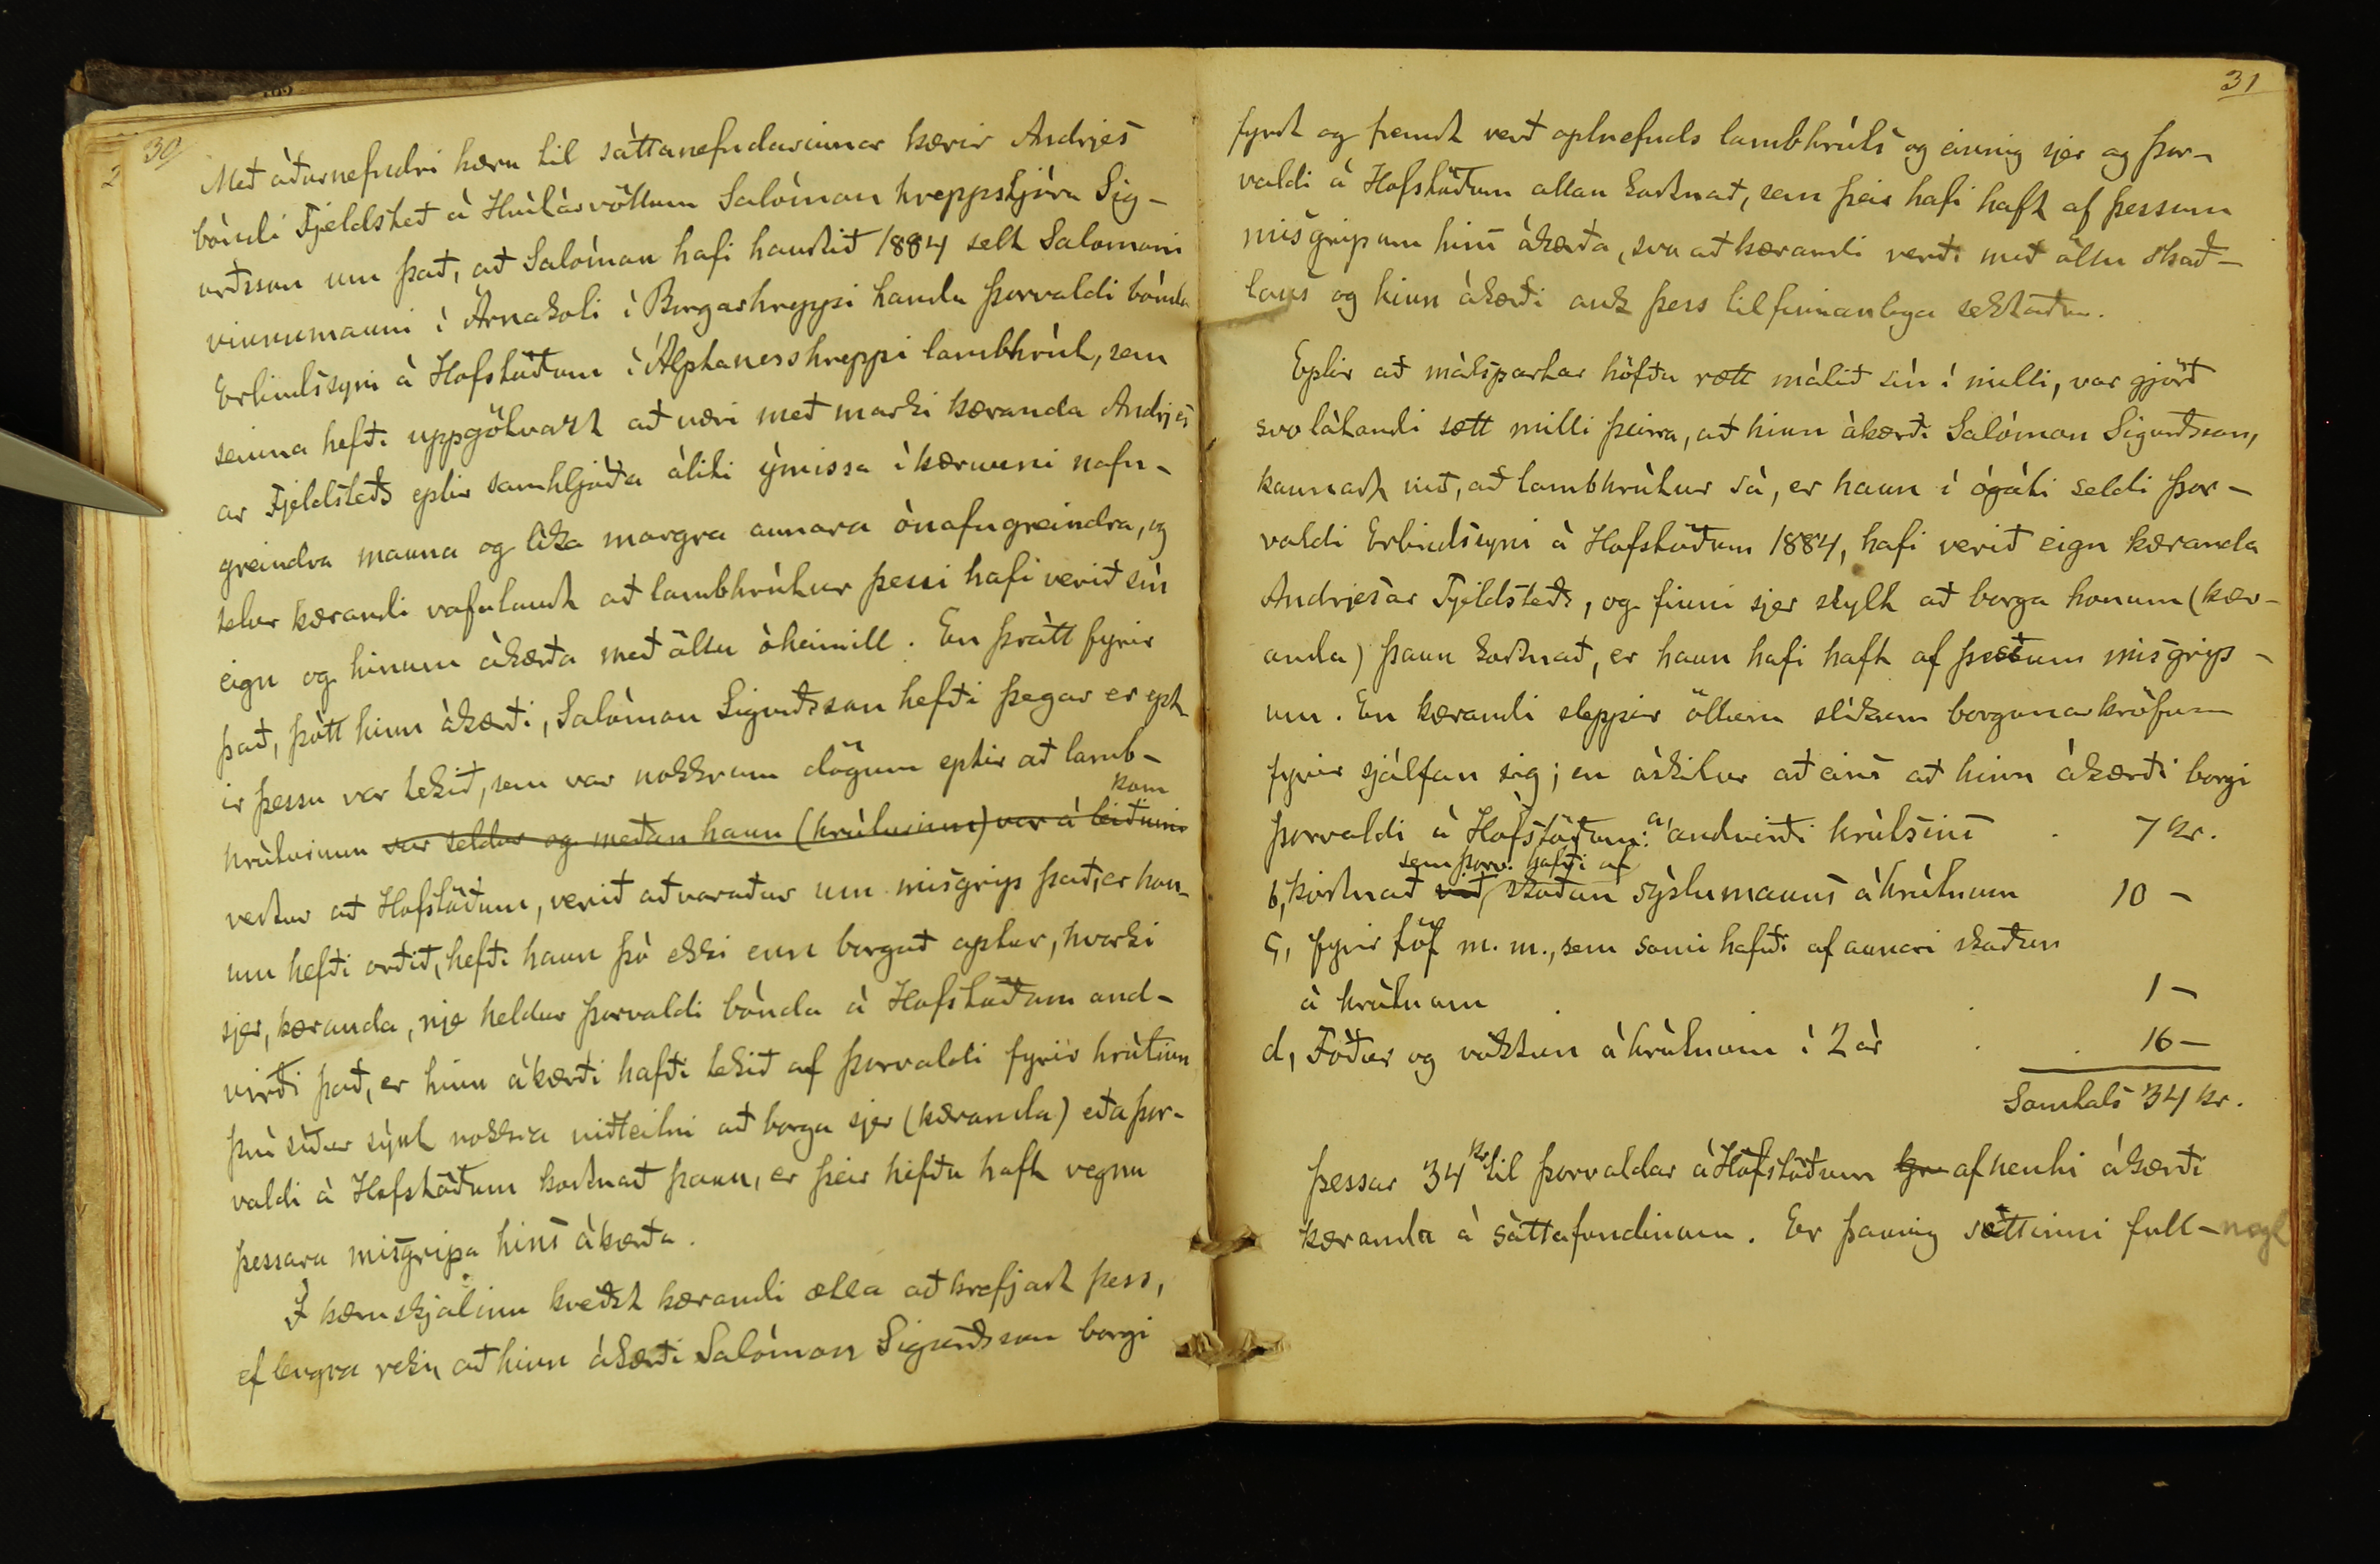 30
2
Með áðurnefndri kæru til sáttanefndarinnar kærir Andrjes
bóndi Fjeldsteð á Hvítárvöllum Salómon hreppstjóra Sig-
urðsson um það, að Salómon hafi haustið 1884 selt Salomoni
vinnumanni í Árnakoti í Borgarhreppi handa Þorvaldi bónda
Erlendssyni á Hofstöðum í Álptaness hreppi lambhrút, sem
seinna hefði uppgötvazt að væri með marki kæranda Andrjes
ar Fjeldsteðs eptir samhljóða áliti ýmissa í kærunni nafn-
greindra manna og líka margra annara ónafngreindra, og
telur kærandi vafalaust að lambhrútur þessi hafi verið sín
eign og hinum ákærða með öllu óheimill. En þrátt fyrir
það, þótt hinn ákærði, Salómon Sigurðsson hefði þegar er ept
ir þessu var tekið, sem var nokkrum dögum eptir að lamb-
kom
hrúturinn var seldur og meðan hann (hrúturinn) var á leiðinni
vestur að Hofstöðum, verið aðvaraður um misgrip það, er hon-
um hefði orðið, hefði hann þó ekki enn borgað aptur, hvorki
sjer, kæranda, nje heldur Þorvaldi bónda á Hofstöðum and-
virði það, er hinn ákærði hafði tekið af Þorvaldi fyrir hrútinn
því síður sýnt nokkra viðleitni að borga sjer (kæranda) eða Þor-
valdi á Hofstöðum kostnað þann, er þeir hefðu haft vegna
þessara misgripa hins ákærða.
Í kæruskjalinu kveðst kærandi ætla að krefjast þess,
ef lengra reki, að hinn ákærði Salómon Sigurðsson borgi
31
fyrst og fremst verð optnefnds lambhrúts og einnig sjer og Þor-
valdi á Hofstöðum allan kostnað, sem þeir hafi haft af þessum
misgripum hins ákærða, svo að kærandi verði með öllu skað-
laus og hinn ákærði auk þess tilfinnanlega sektaður.
Eptir að málspartar höfðu rætt málið sín í milli, var gjörð
svo látandi sætt milli þeirra, að hinn ákærði Salómon Sigurðsson,
kannast við, að lambhrútur sá, er hann í ógáti seldi Þor-
valdi Erlendssyni á Hofstöðum 1884, hafi verið eign kæranda
Andrjesar Fjeldsteðs, og finni sjer skylt að borga honum (kær-
anda) þann kostnað, er hann hafi haft af þessum misgrip-
um. En kærandi sleppir öllum slíkum borgunarkröfum
fyrir sjálfan sig; en áskilur að eins að hinn ákærði borgi
Þorvaldi á Hofstöðum: a, andvirði hrútsins . 7 kr.
sem Þorv. hafði af
b, kostnað við skoðun sýslumanns á hrútnum 10 -
c, fyrir töf m. m., sem sami hafði af annari skoðun
á hrútnum . . 1 -
d, Fóður og vöktun á hrútnum í 2 ár . . 16 -
Samtals 34 kr.
Þessar 34 kr til Þorvaldar á Hofstöðum afhenti ákærði
kæranda á sáttafundinum. Er þannig sættinni full- nægt